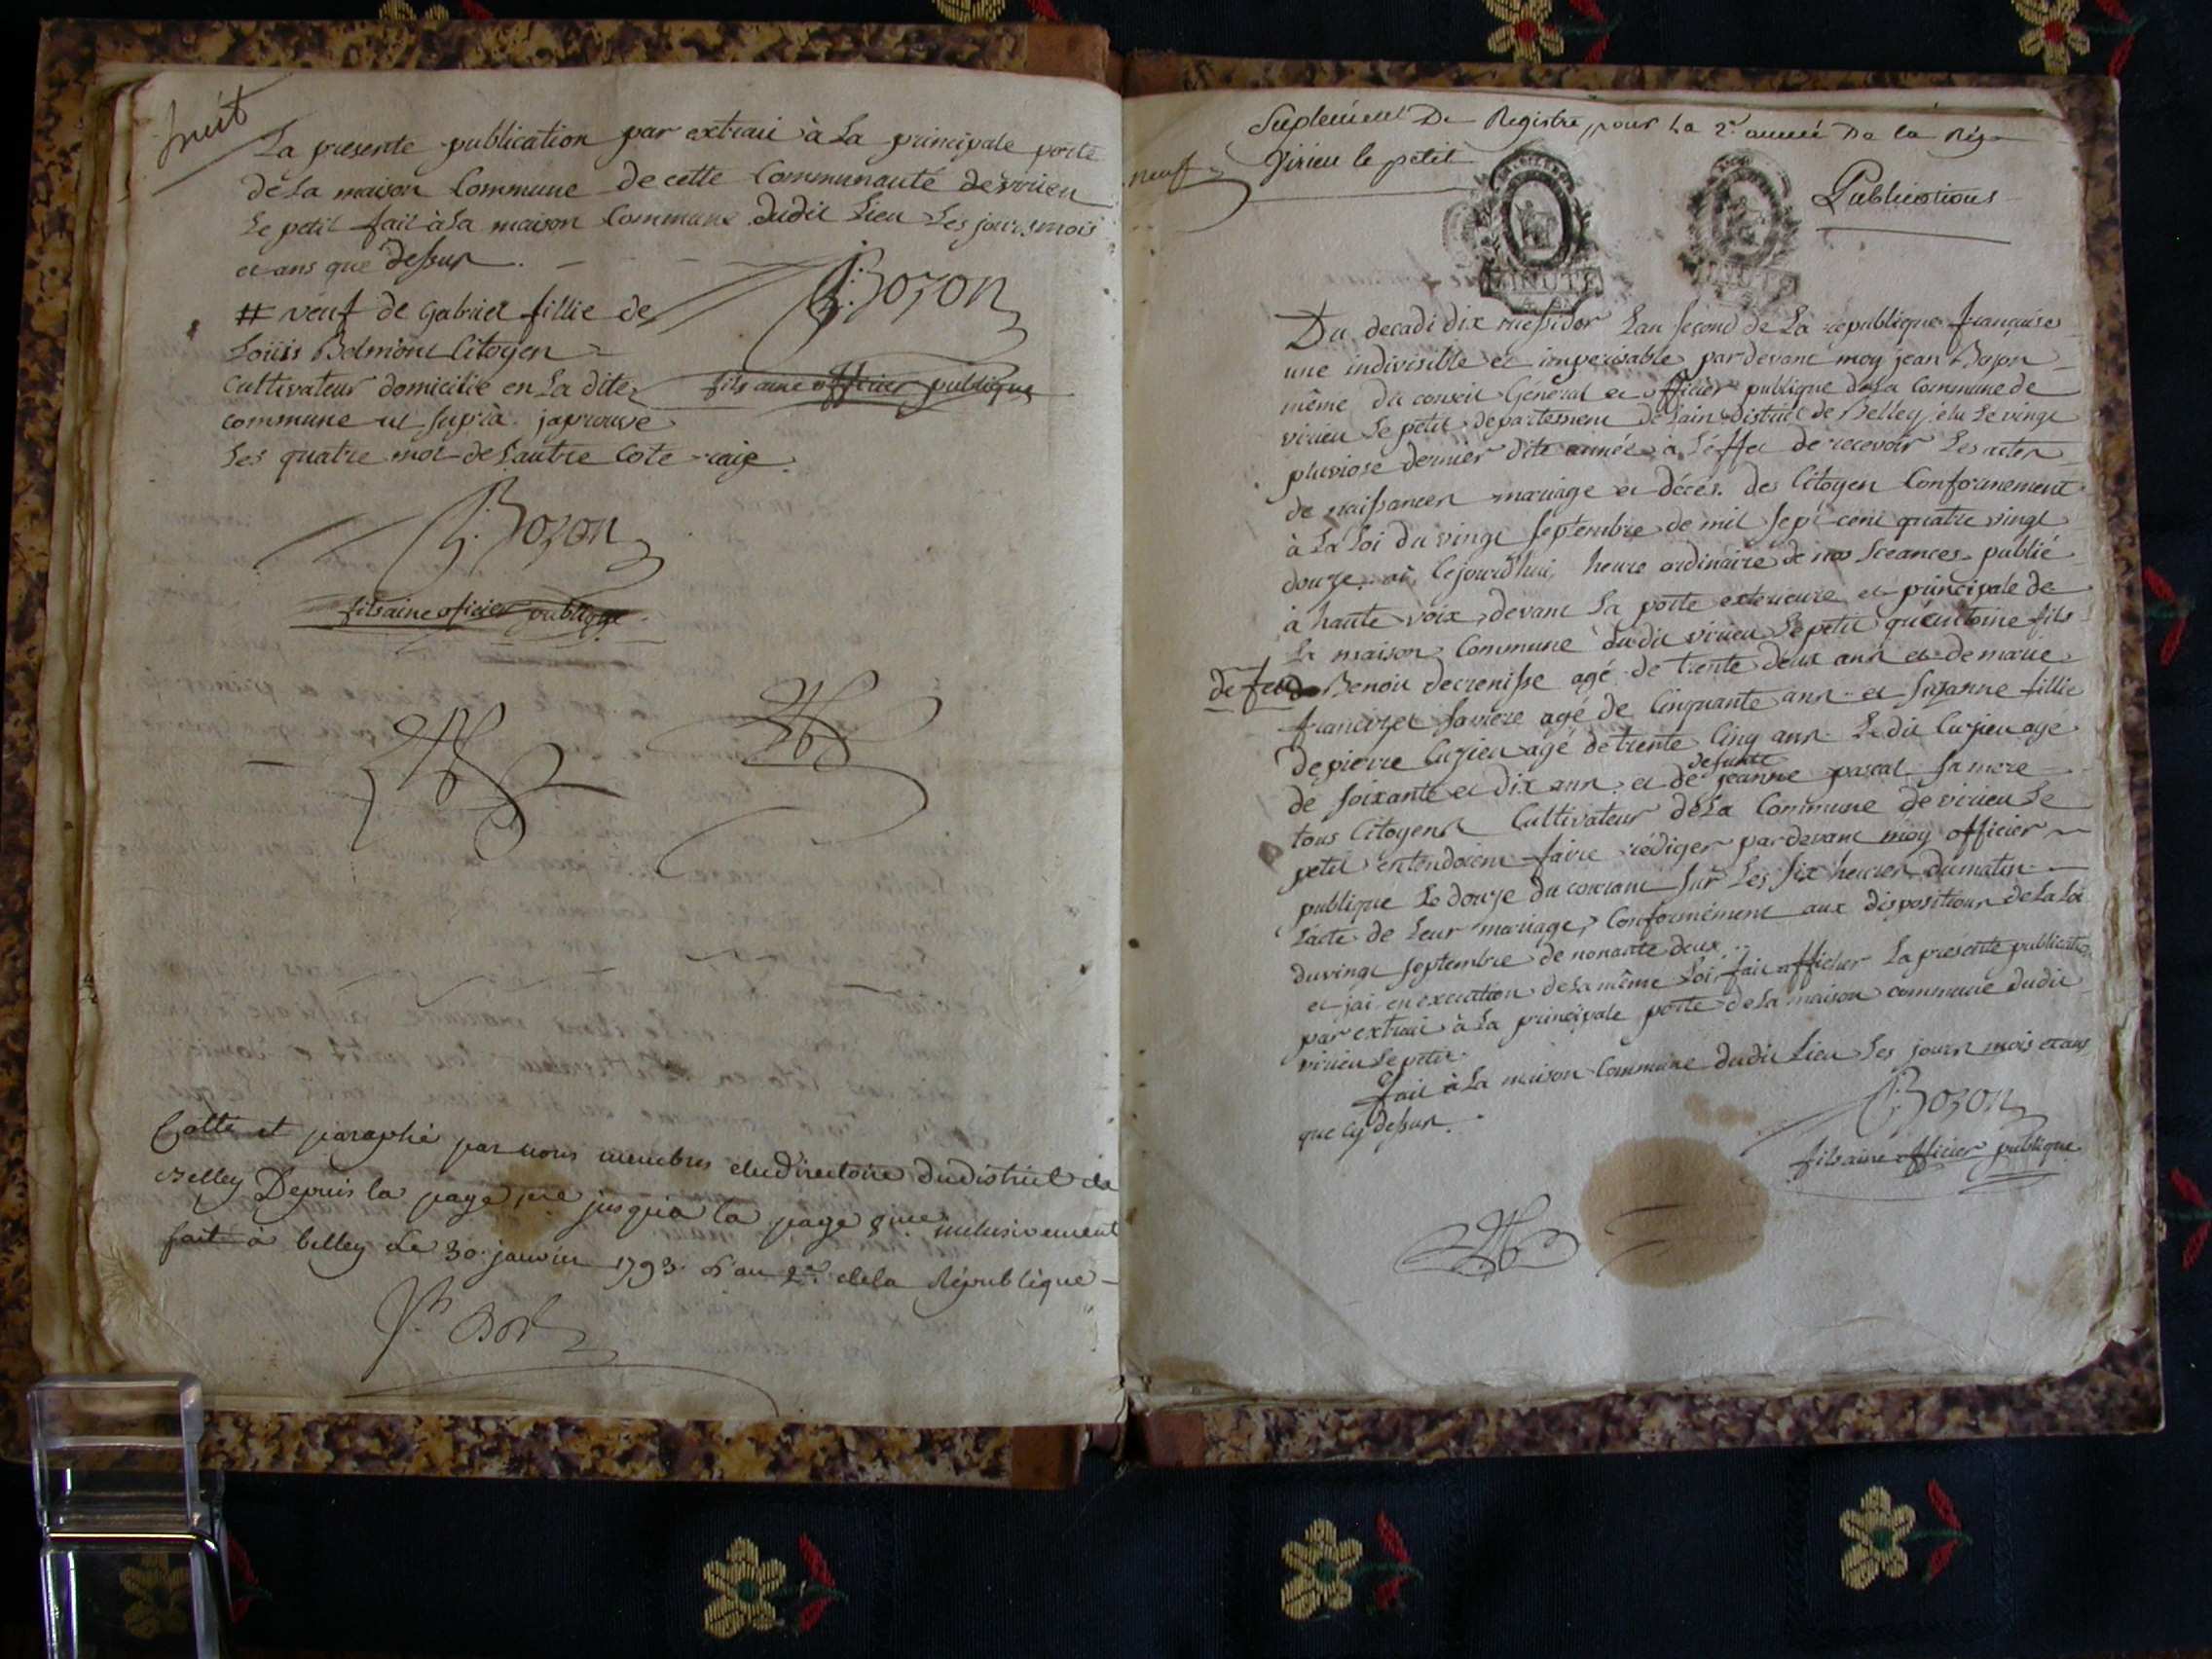 huit
La presente publication par extrait à La principale porte
de La maison Commune de cette Communauté de virieu
Le petit fait à La maison Commune dudit Lieu Les jours mois
et ans que dessus.
J: Bozon
fils ainé officier publique
# veuf de Gabriel fillie de
Loüis Bolmont Citoyen
Cultivateur domicilié en La dite
commune ut suprà japrouve
Les quatre mot de Lautre Cote raié.
J: Bozon
fils ainé oficier publique
Cotté et paraphé par nous membres du directoire du district de
Belley Depuis la page 1ere jusqu'à la page 8me inclusivement
fait à belley le 30. janvier 1793. L'an 2e. de la République
neuf
Suplement De Registre pour La 2e. année De la Rep
Virieu le petit
MINUTE
MINUTE
Publications
Du decadi dix messidor Lan second de La republique françaises
une indivisible et imperisable pardevant moy jean Bozon
même du conseil Général et officier publique de La Commune de
virieu Le petit departement de Lain district de Belley élu Le vingt
pluviose dernier dite année à Léffet de recevoir Les actes
de naissances mariage et décés. des Citoyen Conformement
à La Loi du vingt septembre de mil sept cent quatre vingt
douze. ai Cejourdhui, heure ordinaire de nos Sceances publié
à haute voix devant La porte exterieure et principale de
La maison Commune dudit virieu Le petit qu'entoine fils
de feu Benoit decrenisse agé de trente deux ans et de marie
francoize Saviere agé de Cinquante ans et Suzanne fillie
de pierre Cuzieu agé de trente Cinq ans. Le dit Cuzieu agé
de soixante et dix ans et de defunte jeanne pascal sa mere
tous Citoyens Cultivateur de La Commune de virieu Le
petit entendoient faire rédiger pardevant moy officier
publique Le douze du courant sur Les six heures du matin
L'acte de Leur mariage, Conformément aux dispositions de La Loi
du vingt septembre de nonante deux.
et jai en execution de La même Loi fait afficher La presente publication
par extrait à La principale porte de La maison commune dudit
virieu Le petit.
fait à La maison Commune dudit Lieu Les jours mois et ans
que cy dessus.
J: Bozon
fils ainé officier publique